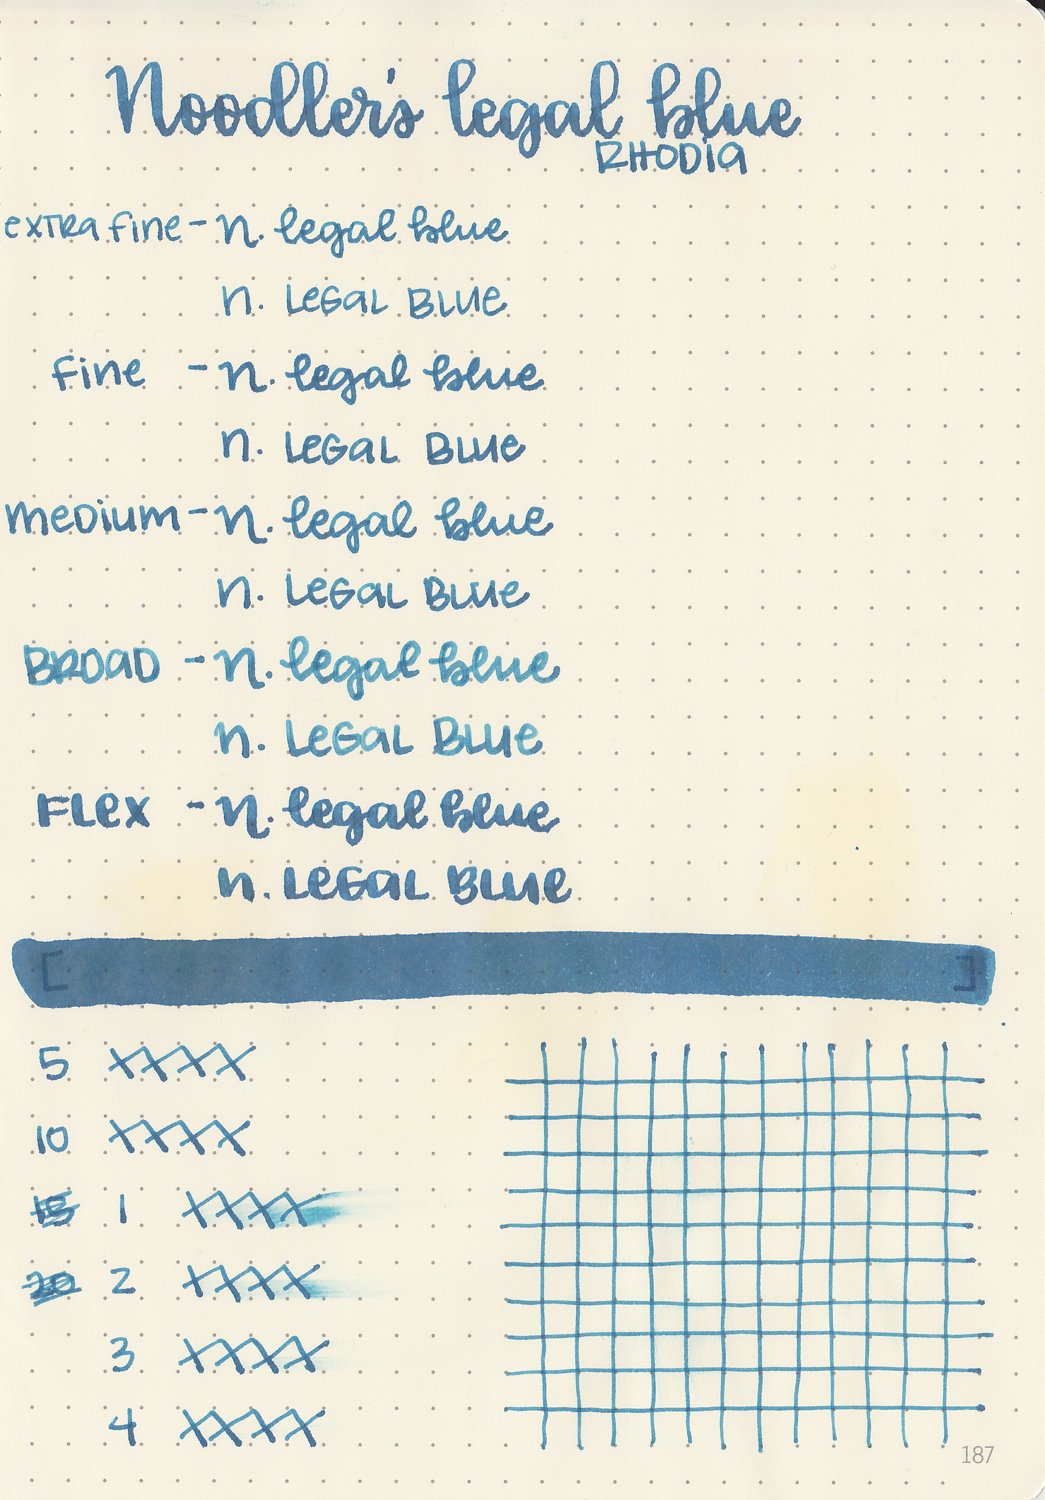 Noodler's legal blue
RHODIA
extra fine - n. legal blue
n. LEGAL BLUE
fine - n. legal blue
n. LEGAL BLUE
medium - n. legal blue
n. LEGAL BLUE
BROAD - n. legal blue
n. LEGAL BLUE
FLEX - n. legal blue
n. LEGAL BLUE
[ ]
5 XXXX
10 XXXX
15 1 XXXX
20 2 XXXX
3 XXXX
4 XXXX
187